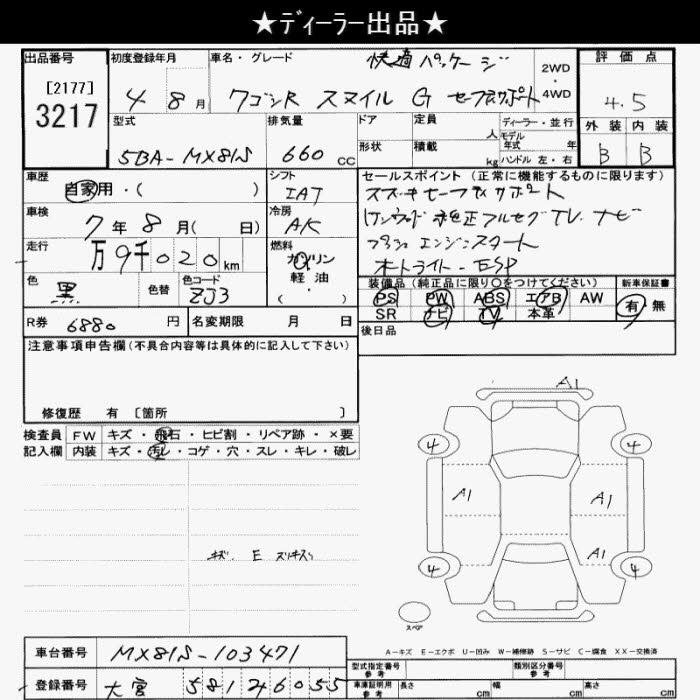 ★ディーラー出品★
出品番号 初度登録年月 車名・グレード 快適パッケージ 2WD・4WD 評価点
[2177]
3217
4 8月 ワゴンR スマイル G セーフティサポート 4.5
型式 排気量 ドア 定員 人 ディーラー・並行 外装 内装
モデル年式 年
5BA-MX81S 660cc 形状 積載 kg ハンドル 左・右 B B
車歴 シフト セールスポイント (正常に機能するものに限ります)
自家用・( ) IAT スズキセーフティサポート
車検 冷房
7年8月( 日) AK 純正フルセグTV.ナビ
走行 燃料 プッシュエンジンスタート
万9千020km ガソリン オートライト-ESP
色 色コード 軽油 装備品(純正品に限り○をつけてください) 新車保証書
黒 色替 ZJ3 ・( ) PS PW ABS エアB AW 有・無
SR ナビ TV 本革
R券 6880円 名変期限 月 日 後日品
注意事項申告欄(不具合内容等は具体的に記入して下さい)
修復歴 有 [箇所 ]
A1
検査員 FW キズ・飛石・ヒビ割・リペア跡・×要
記入欄 内装 キズ・汚レ・コゲ・穴・スレ・キレ・破レ
4 4
A1 A1
A1
キズ. E
4 4
スペア
A-キズ E-エクボ U-凹み W-補修跡 S-サビ C-腐食 XX-交換済
車台番号 MX81S-103471
型式指定番号 参考 類別区分番号 参考
登録番号 大宮 581 2 6055
車庫証明用 参考 長さ cm 幅 cm 高さ cm